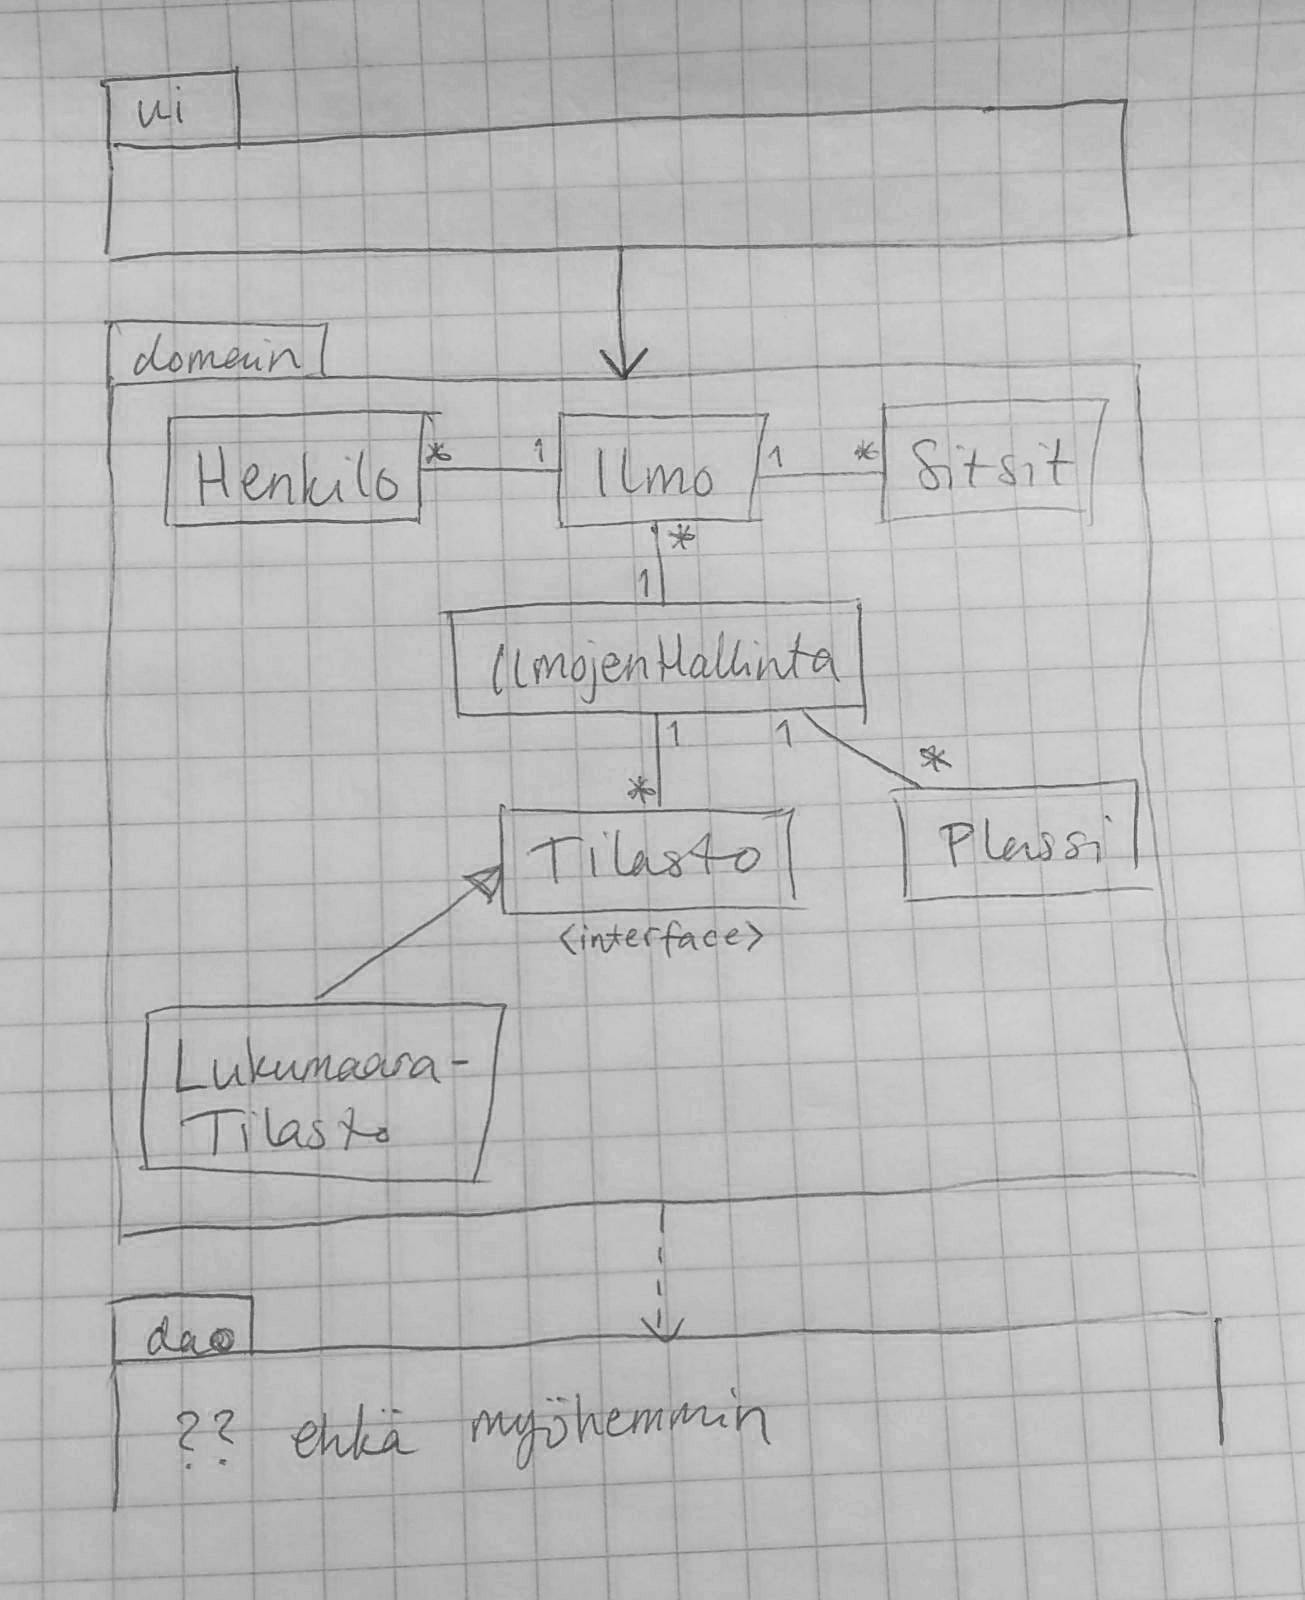 ui
domain
Henkilo * 1 Ilmo 1 * Sitsit
*
1
IlmojenHallinta
1 1
* *
Tilasto Plassi
<interface>
Lukumaara-
Tilasto
dao
?? ehkä myöhemmin